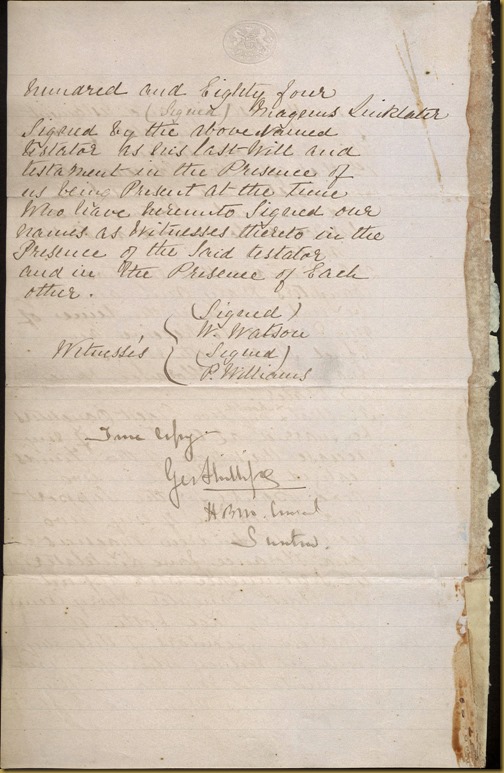 hundred and Eighty four
(Signed) Magnus Linklater
Signed by the above named
testator as his last Will and
testament in the Presence of
us being Present at the time
Who have hereunto Signed our
names as Witnesses thereto in the
Presence of the Said testator
and in the Presence of Each
other.
(Signed)
W. Watson
Witnesses
(Signed)
P. Williams
True Copy
Geo Phillips
H B M. Consul